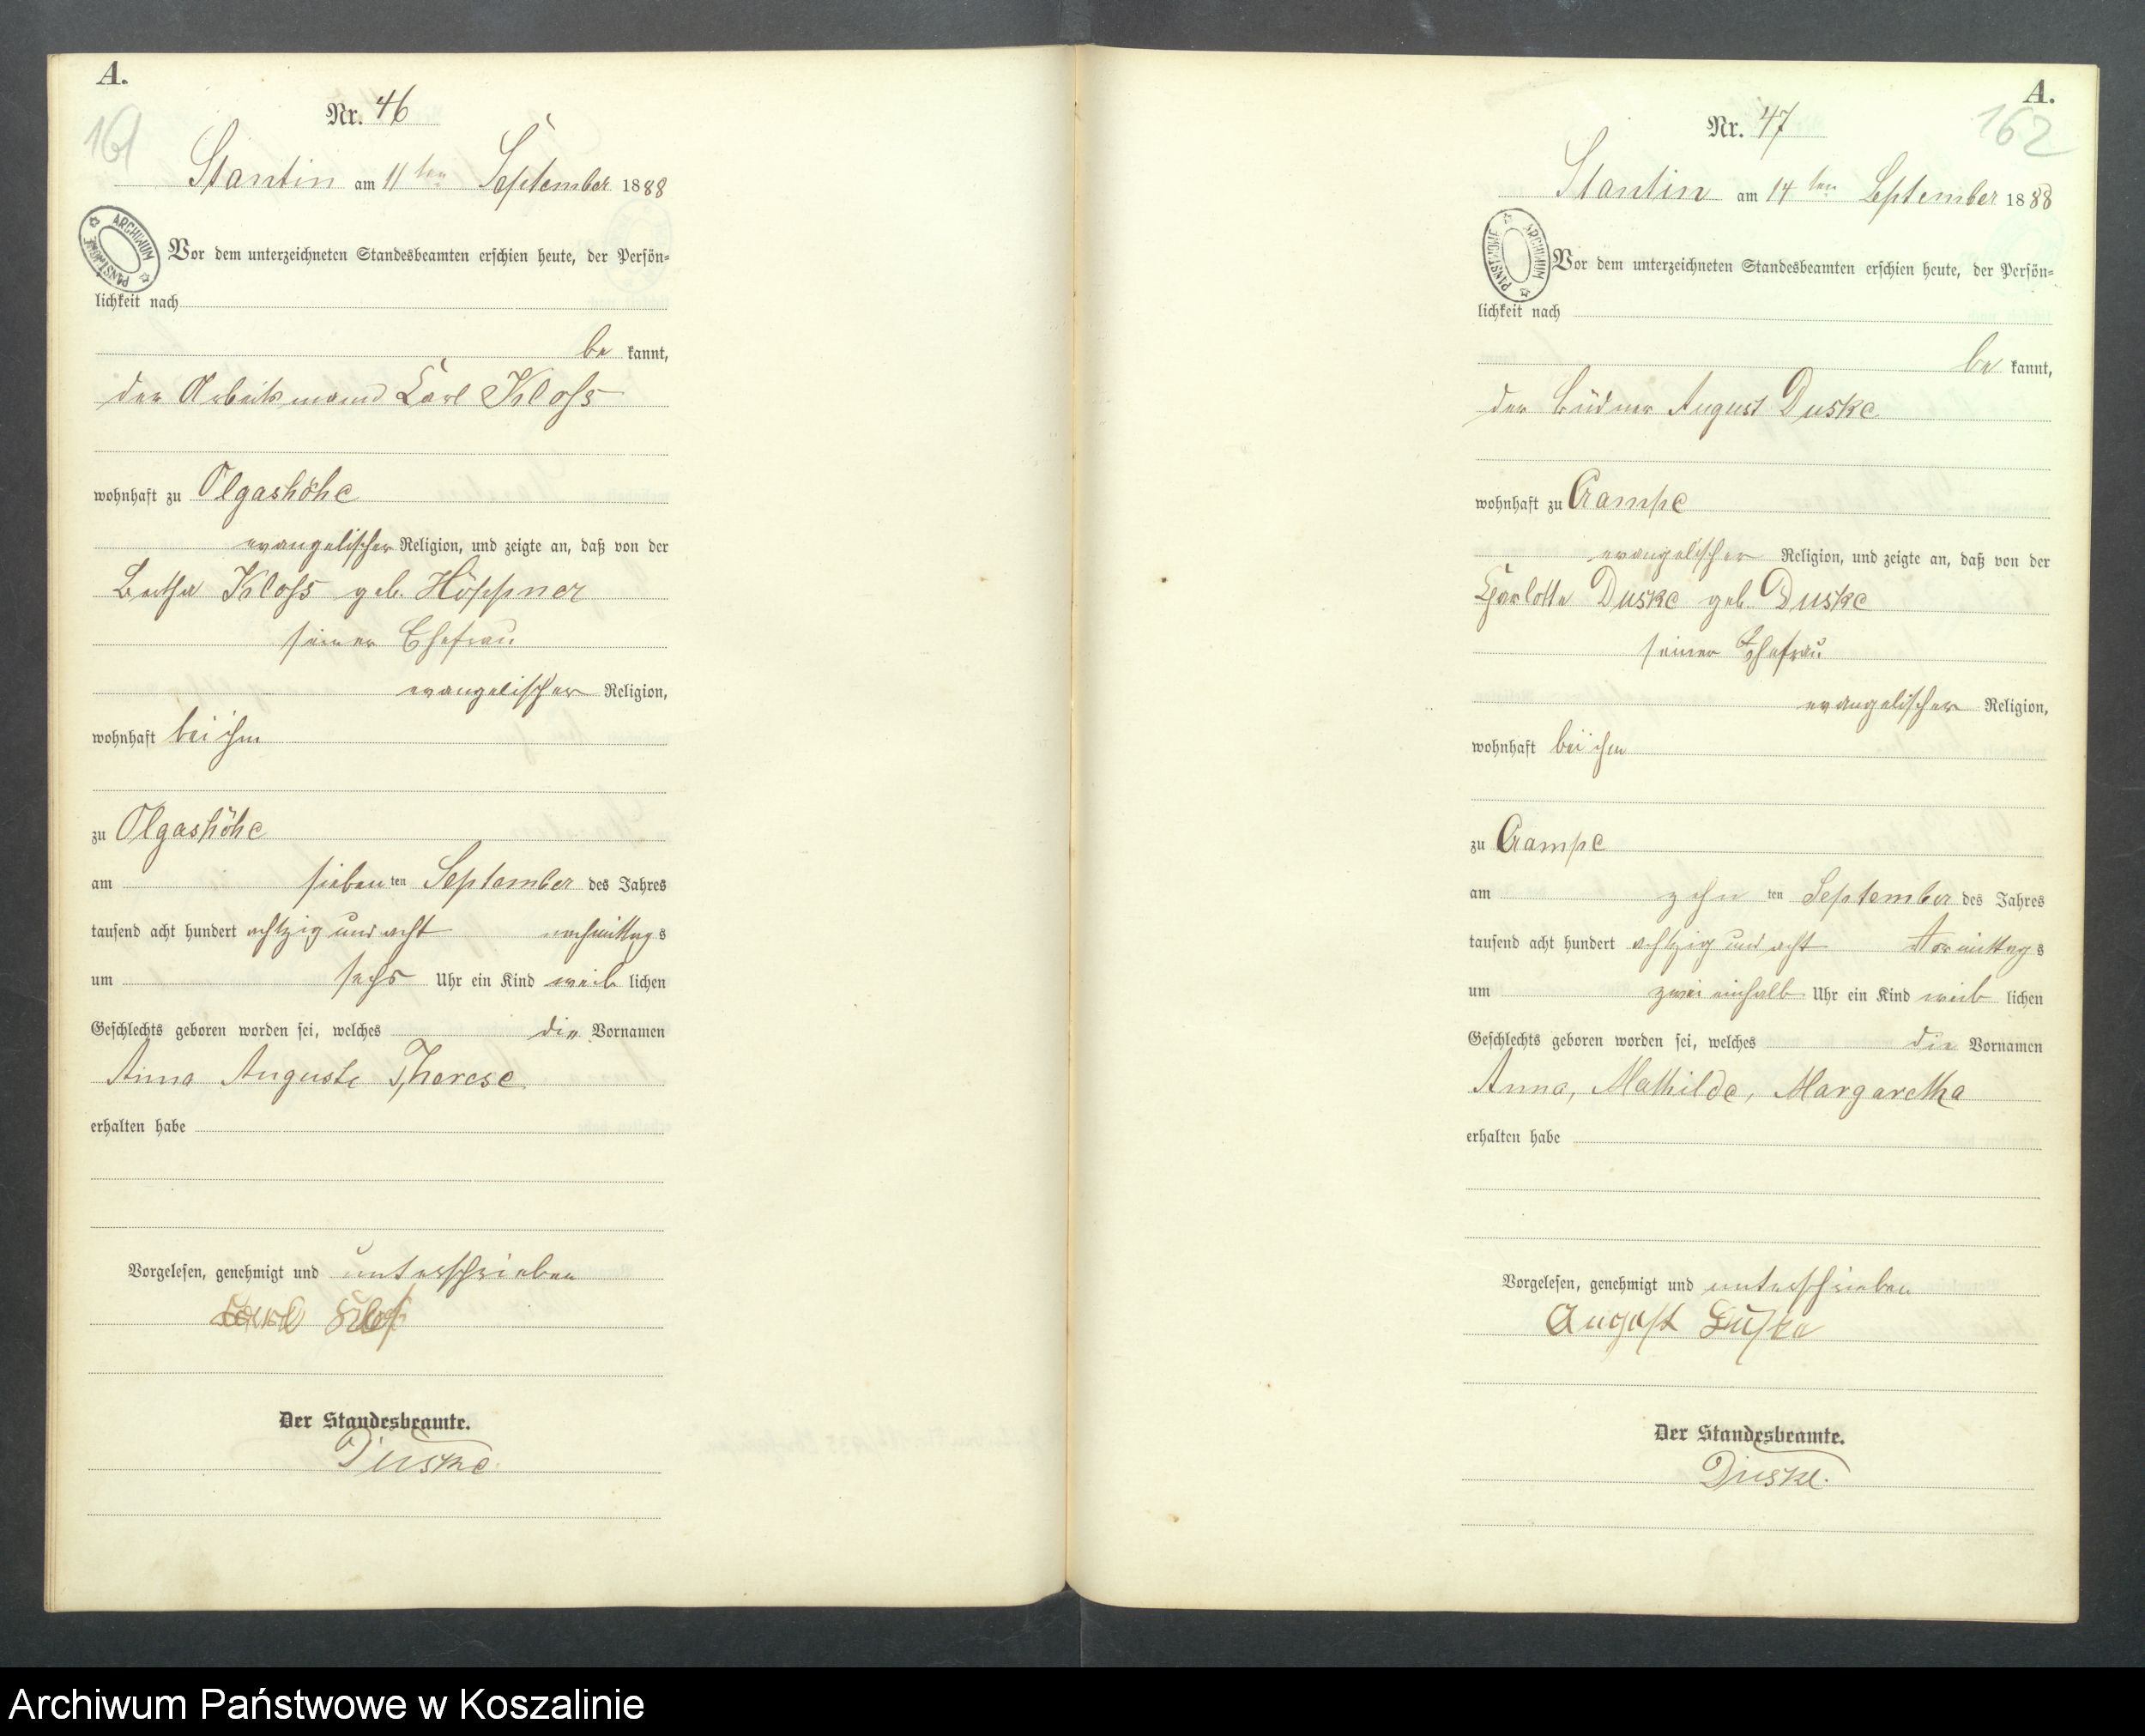 A.
161
Nr. 46
Stantin am 11 ten September 1888
ARCHIWUM PAŃSTWOWE
Vor dem unterzeichneten Standesbeamten erschien heute, der Persön-
lichkeit nach
be kannt,
der Arbeitsmann Carl Kloß
wohnhaft zu Olgashöhe
evangelischer Religion, und zeigte an, daß von der
Bertha Kloß geb. Höppner
seiner Ehefrau
evangelischer Religion,
wohnhaft bei ihm
zu Olgashöhe
am sieben ten September des Jahres
tausend acht hundert achtzig und acht nachmittags
um sechs Uhr ein Kind weib lichen
Geschlechts geboren worden sei, welches die Vornamen
Anna Auguste Therese
erhalten habe
Vorgelesen, genehmigt und unterschrieben
Carl Kloß
Der Standesbeamte.
Duske
A.
162
Nr. 47
Stantin am 14 ten September 1888
ARCHIWUM PAŃSTWOWE
Vor dem unterzeichneten Standesbeamten erschien heute, der Persön-
lichkeit nach
be kannt,
der Büdner August Duske
wohnhaft zu Crampe
evangelischer Religion, und zeigte an, daß von der
Charlotte Duske geb. Duske
seiner Ehefrau
evangelischer Religion,
wohnhaft bei ihm
zu Crampe
am zehn ten September des Jahres
tausend acht hundert achtzig und acht Vormittags
um zwei einhalb Uhr ein Kind weib lichen
Geschlechts geboren worden sei, welches die Vornamen
Anna, Mathilde, Margaretha
erhalten habe
Vorgelesen, genehmigt und unterschrieben
August Duske
Der Standesbeamte.
Duske.
Archiwum Państwowe w Koszalinie